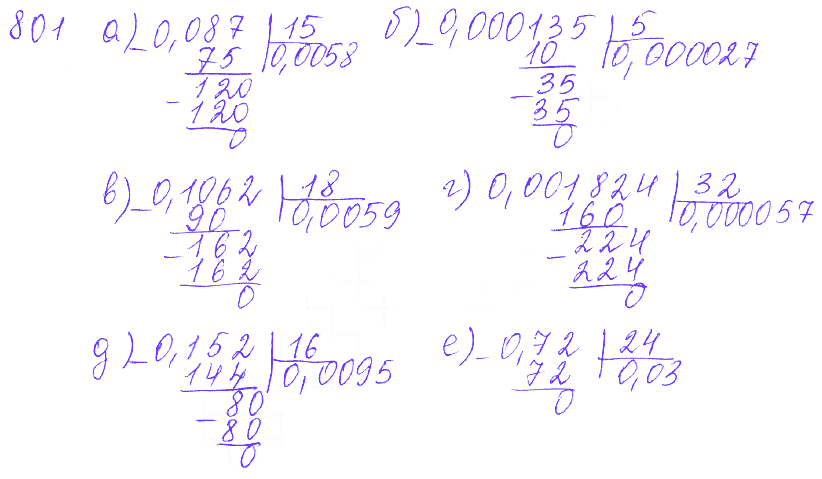 801 а) _0,087 | 15 б) _0,000135 | 5
75 0,0058 10 0,000027
120 _35
_120 35
0 0
в) _0,1062 | 18 г) 0,001824 | 32
90 0,0059 160 0,000057
_162 _224
162 224
0 0
д) _0,152 | 16 е) _0,72 | 24
144 0,0095 72 0,03
_80 0
80
0